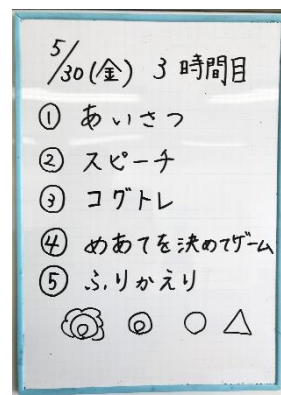 5/30(金) 3時間目
① あいさつ
② スピーチ
③ コグトレ
④ めあてを決めてゲーム
⑤ ふりかえり